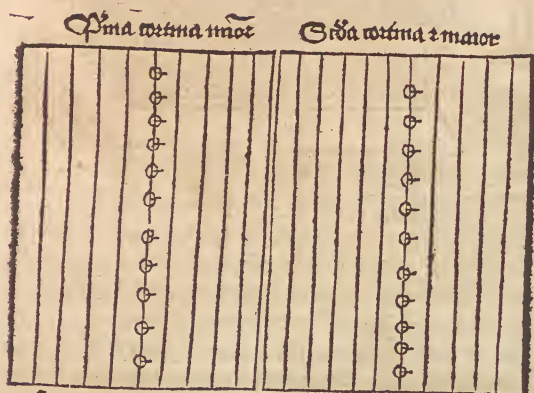 P̄ma cortina maior
Scd̄a cortina ⁊ maior